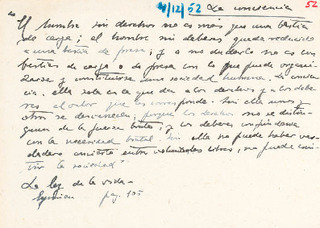 4/12/52 La conciencia 52
El hombre sin derechos no es más que una bestia
de carga; el hombre sin deberes queda reducido
a una bestia de presa; y a mi decirlo no es con
bestias de carga o de presa con lo que puede organi-
zarse y constituirse una sociedad humana. La concien-
cia, ella sola es la que da a los derechos y a los debe-
res el valor que les corresponde. Sin ella unos y
otros se desvanecen; porque los derechos no se distin-
guen de la fuerza bruta; y los deberes confúndense
con la necesidad brutal. Sin ella no puede haber ver-
dadero concierto entre voluntades libres, no puede cons-
tituir la sociedad"
La ley de la vida -
pag. 105